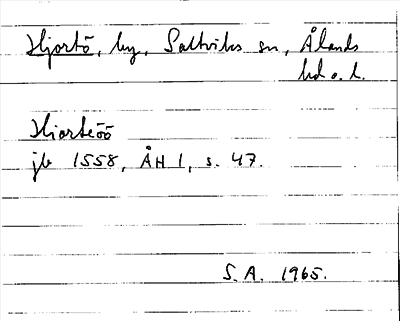 Hjortö, by, Saltviks sn, Ålands
hd o. l.
Hiorteöö
jb 1558, ÅH 1, s. 47.
S.A. 1965.